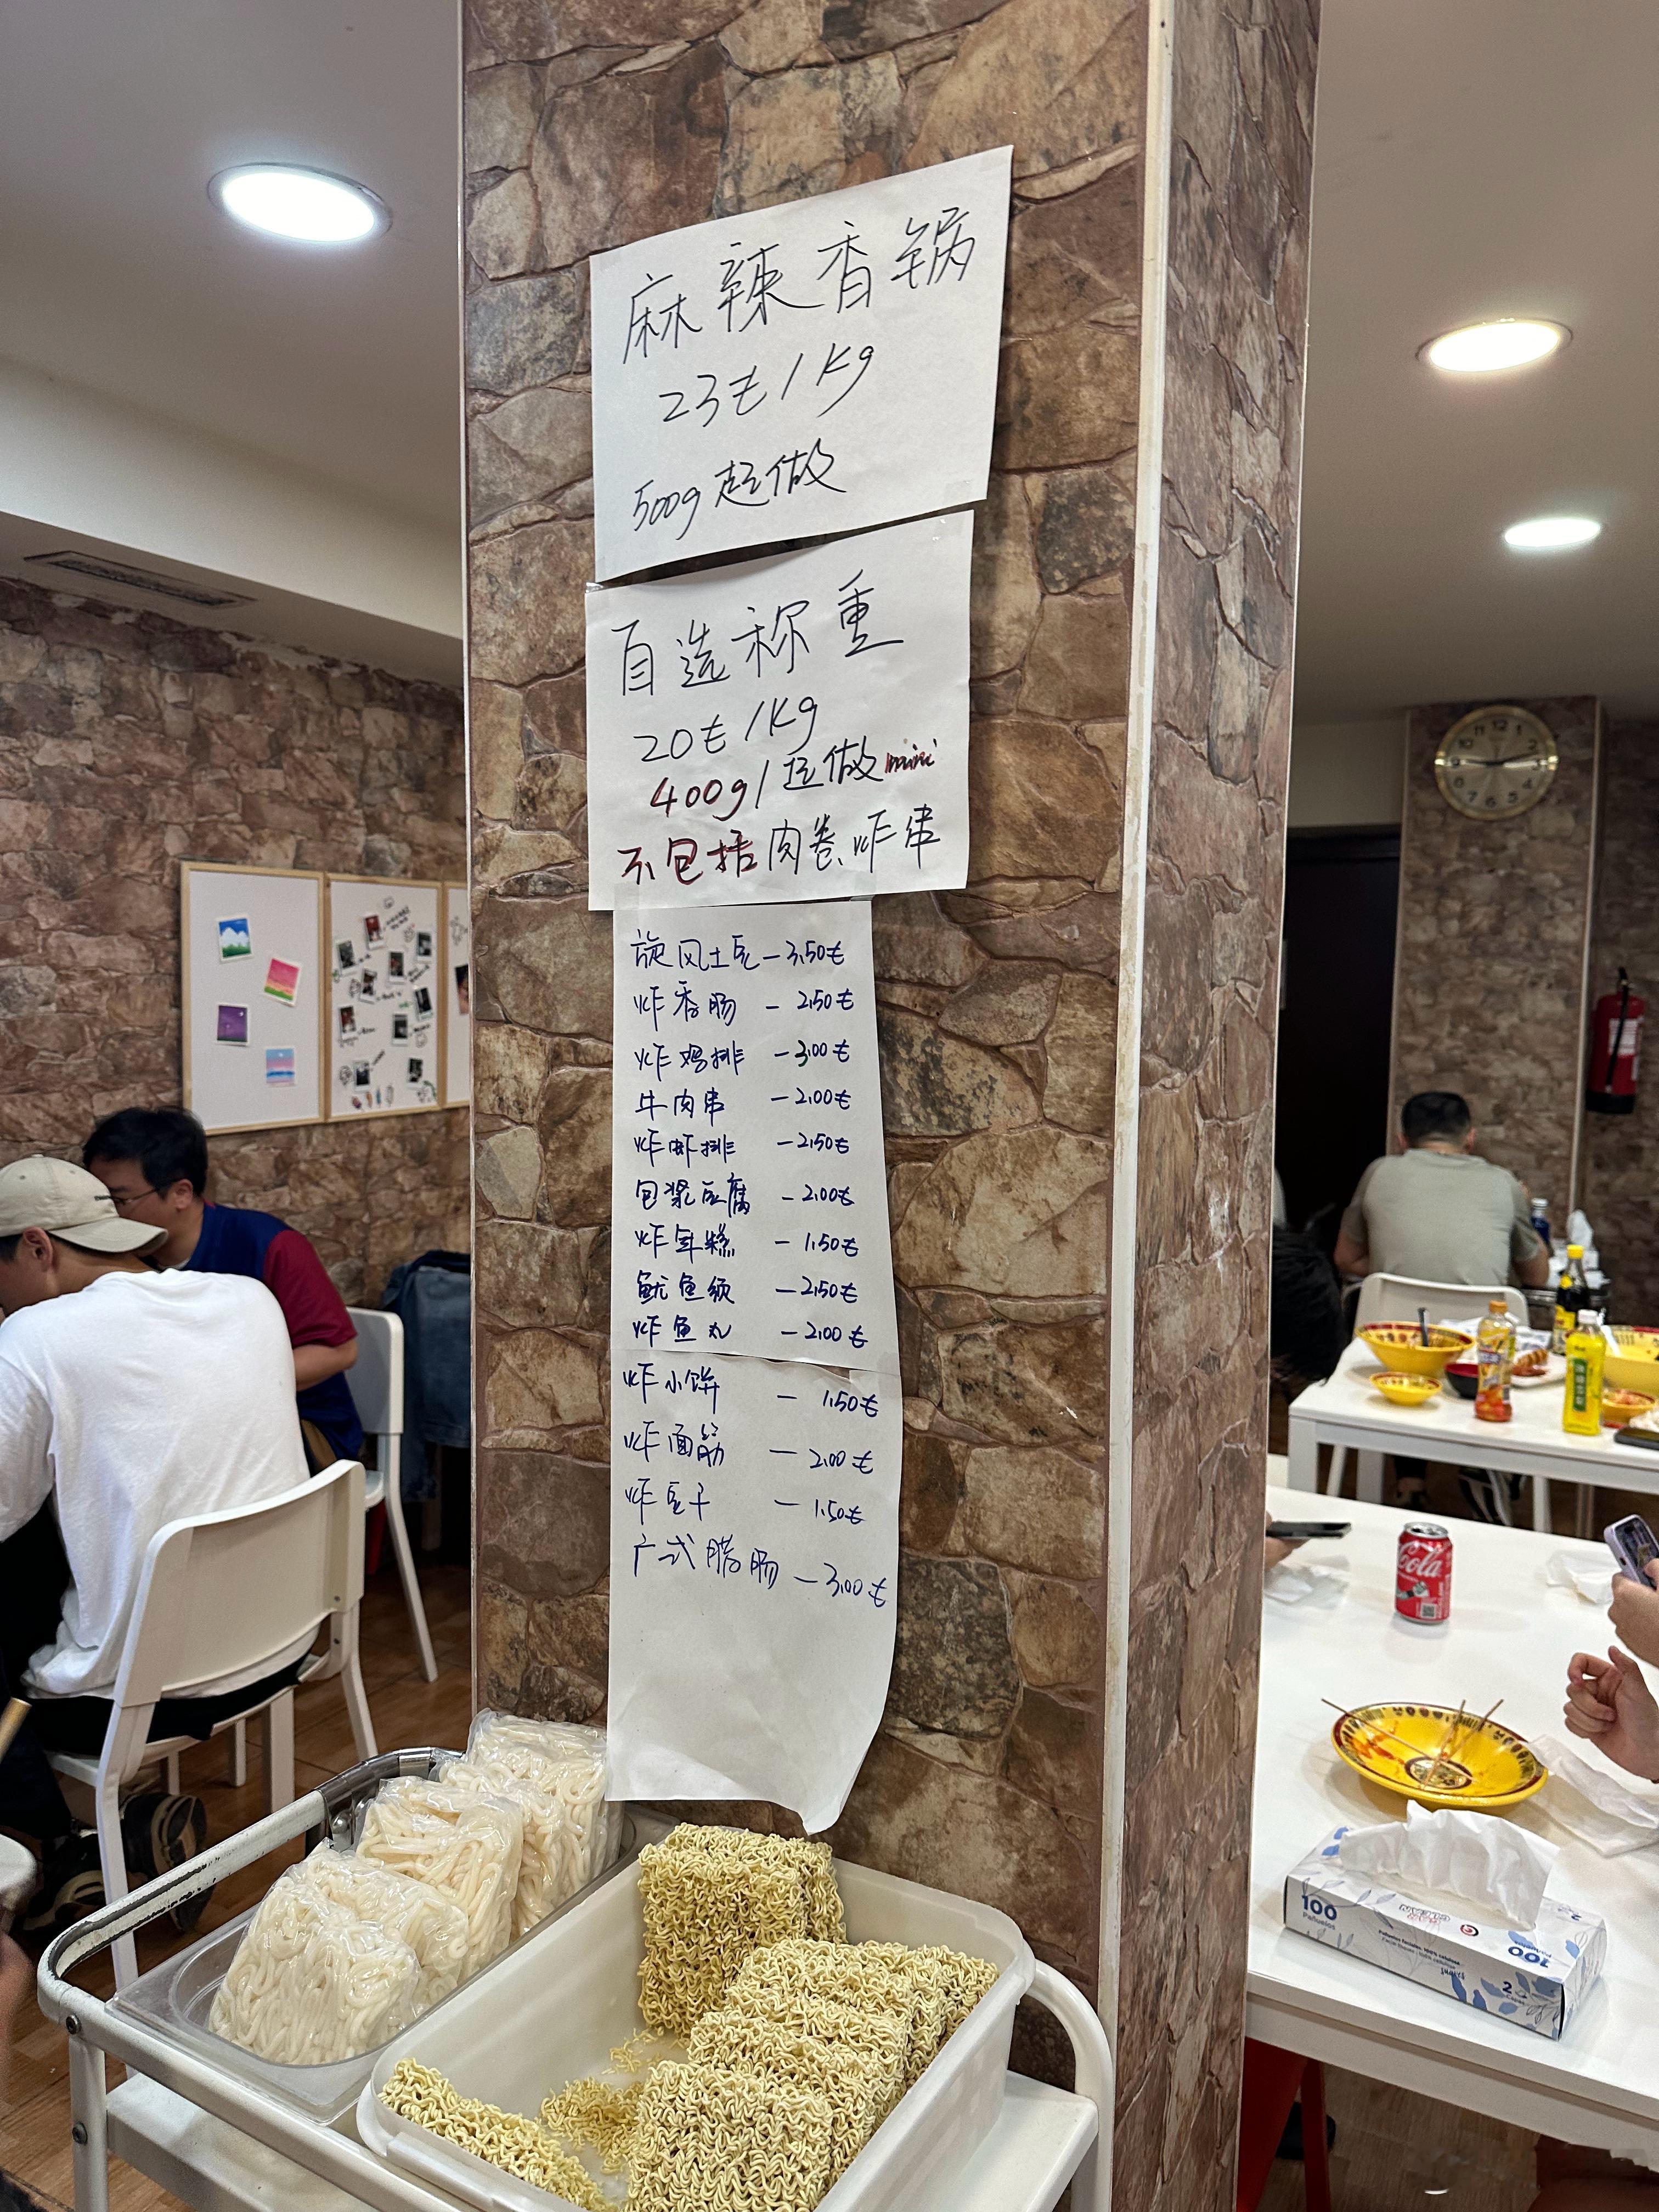 麻辣香锅
23€/kg
500g起做
自选称重
20€/kg
400g/起做mini
不包括肉卷、炸串
旋风土豆-3,50€
炸香肠-2,50€
炸鸡排-3,00€
牛肉串-2,00€
炸虾排-2,50€
包浆豆腐-2,00€
炸年糕-1,50€
鱿鱼须-2,50€
炸鱼丸-2,00€
炸小饼-1,50€
炸面筋-2,00€
炸豆干-1,50€
广式腊肠-3,00€
Cola
100
Pañuelos
100